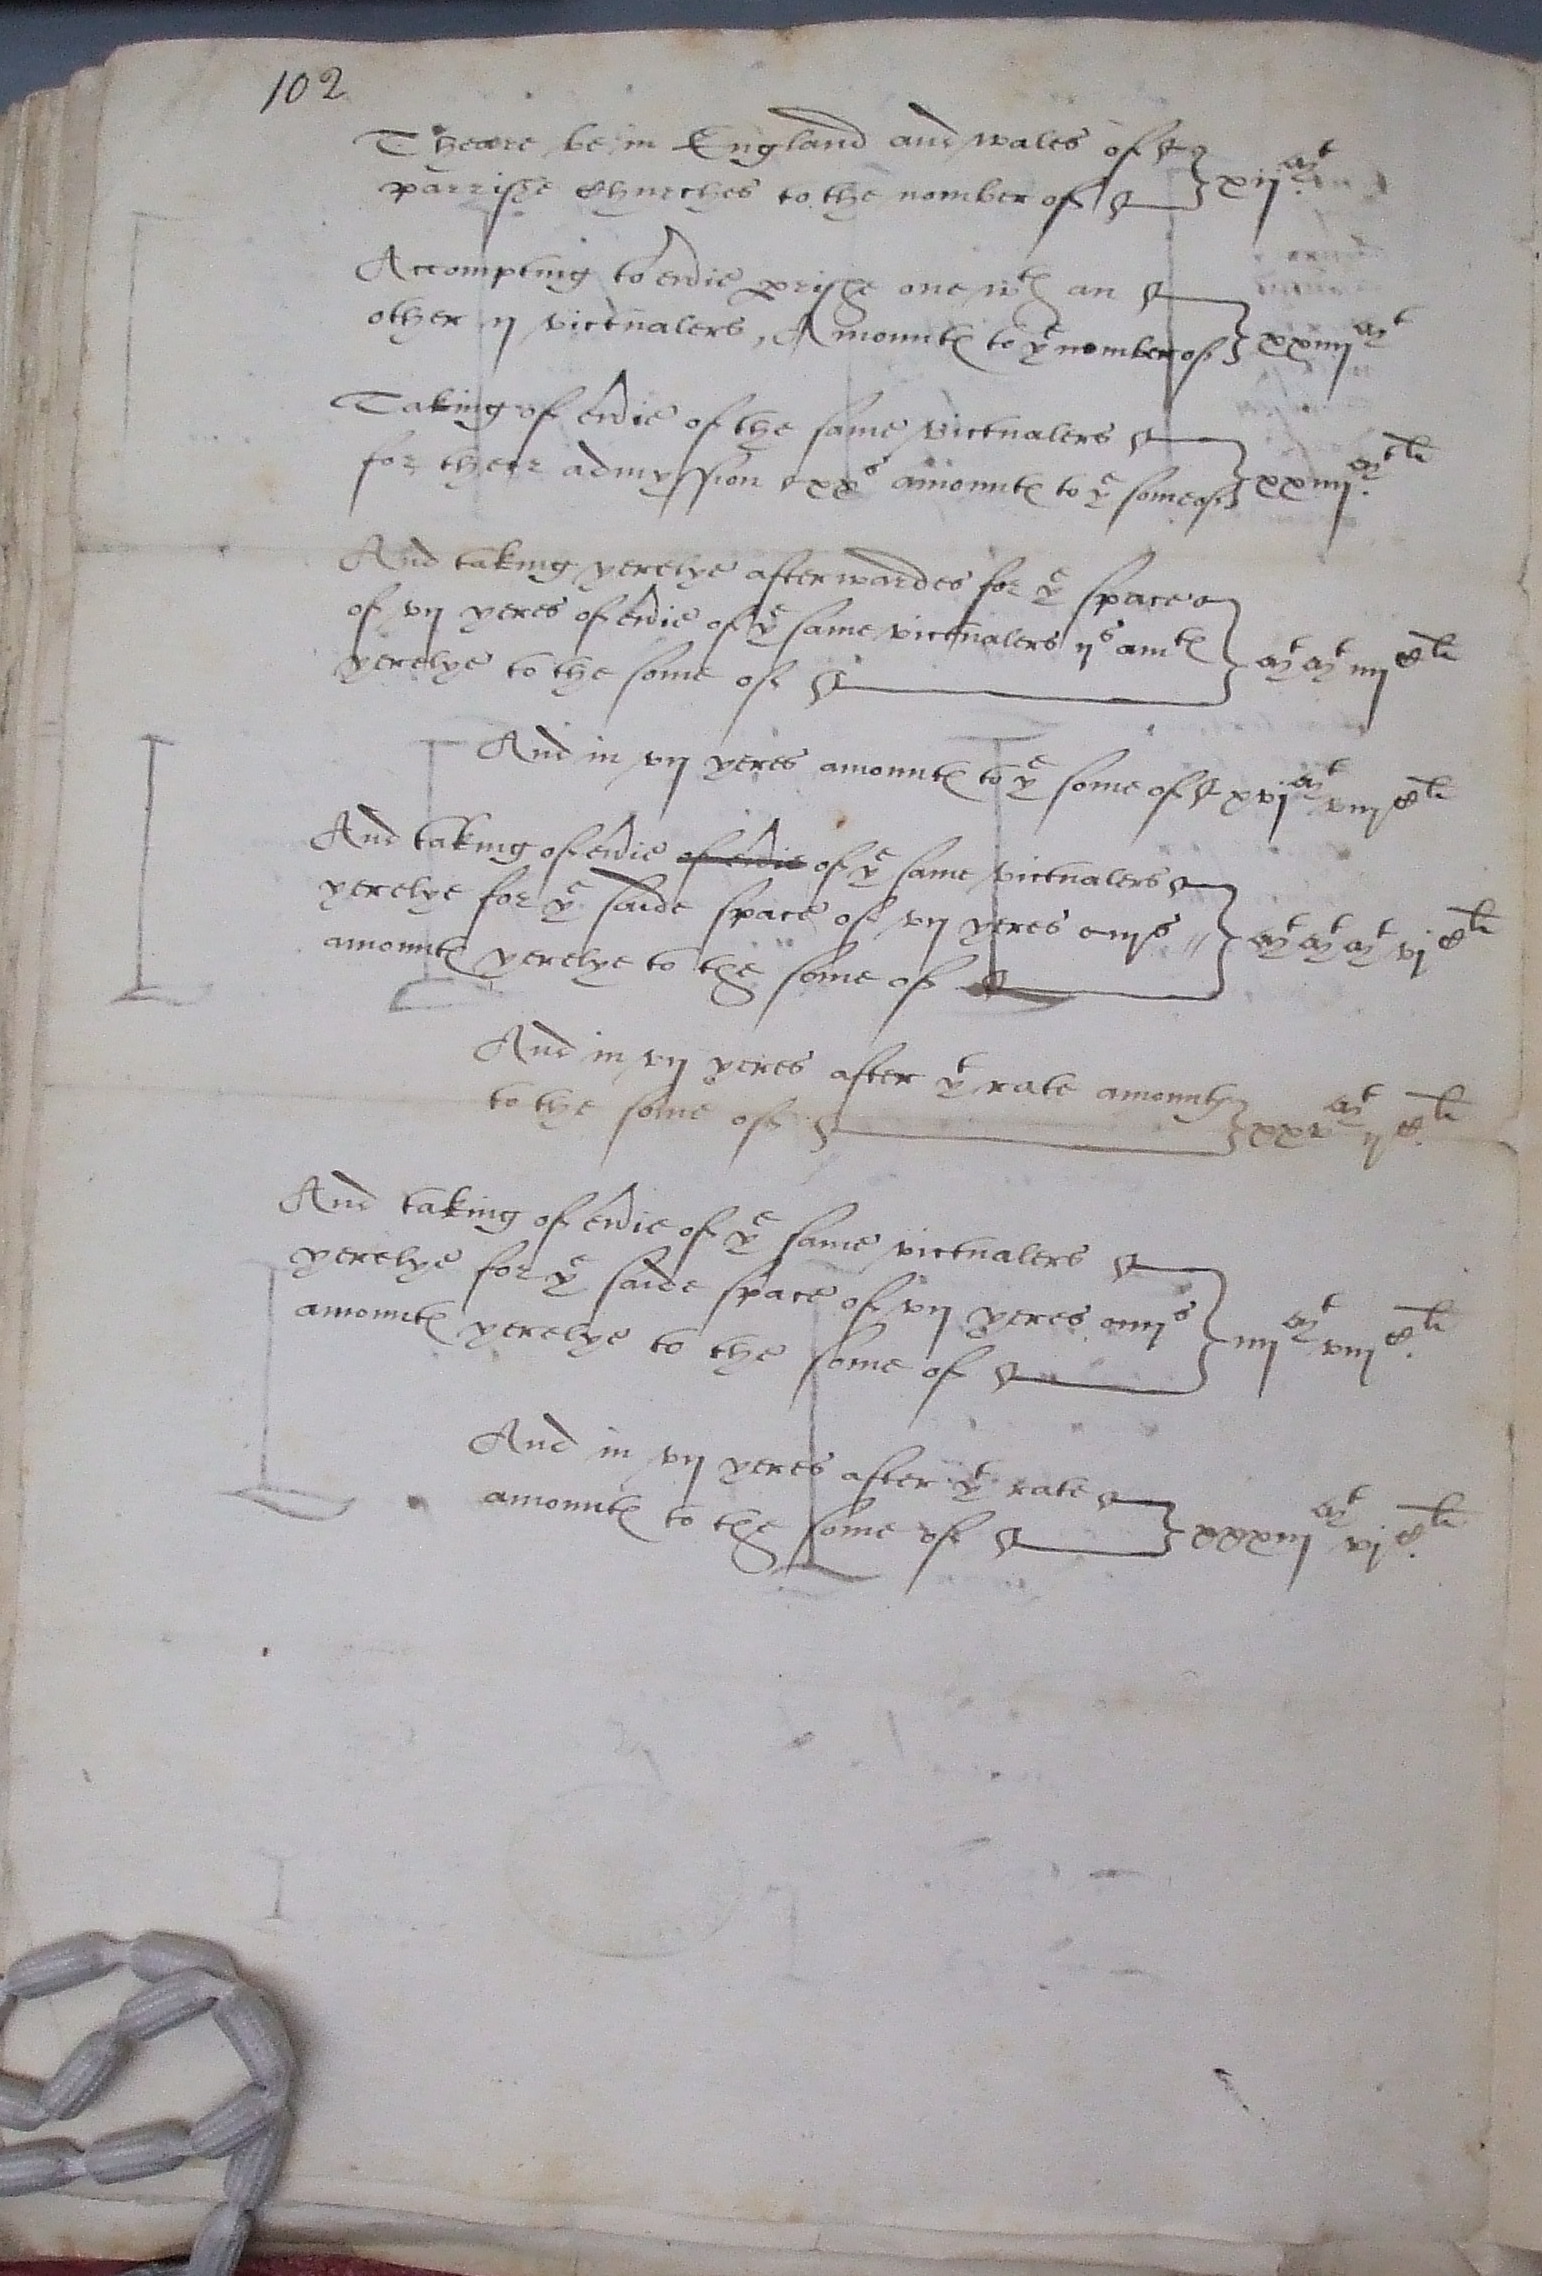 102
Theare be in England and wales of } xij Mt
parrishe Churches to the nomber of
Accompting to eu'ie p'rishe one wth an
other ij victualers, Amountt to ye nomber of } xxiiij Mt
Taking of eu'ie of the same victualers
for their admyssion xxs amountt to ye some of } xxiiij Mt li
And taking yerelye afterwardes for ye space
of vij yeres of eu'ie of ye same victualers ijs amtt
yerelye to the some of } Mt Mt iiij C li
And in vij yeres amountt to ye some of xvj Mt viij C li
And taking of eu'ie of eu'ie of ye same victualers
yerelye for ye saide space of vij yeres iijs
amountt yerelye to the some of } Mt Mt Mt vj C li
And in vij yeres after yt rate amountt
to the some of } xxv Mt ij C li
And taking of eu'ie of ye same victualers
yerelye for ye saide space of vij yeres iiijs
amountt yerelye to the some of } iiij Mt viij C li
And in vij yeres after yt rate
amountt to the some of } xxxiij Mt vj C li